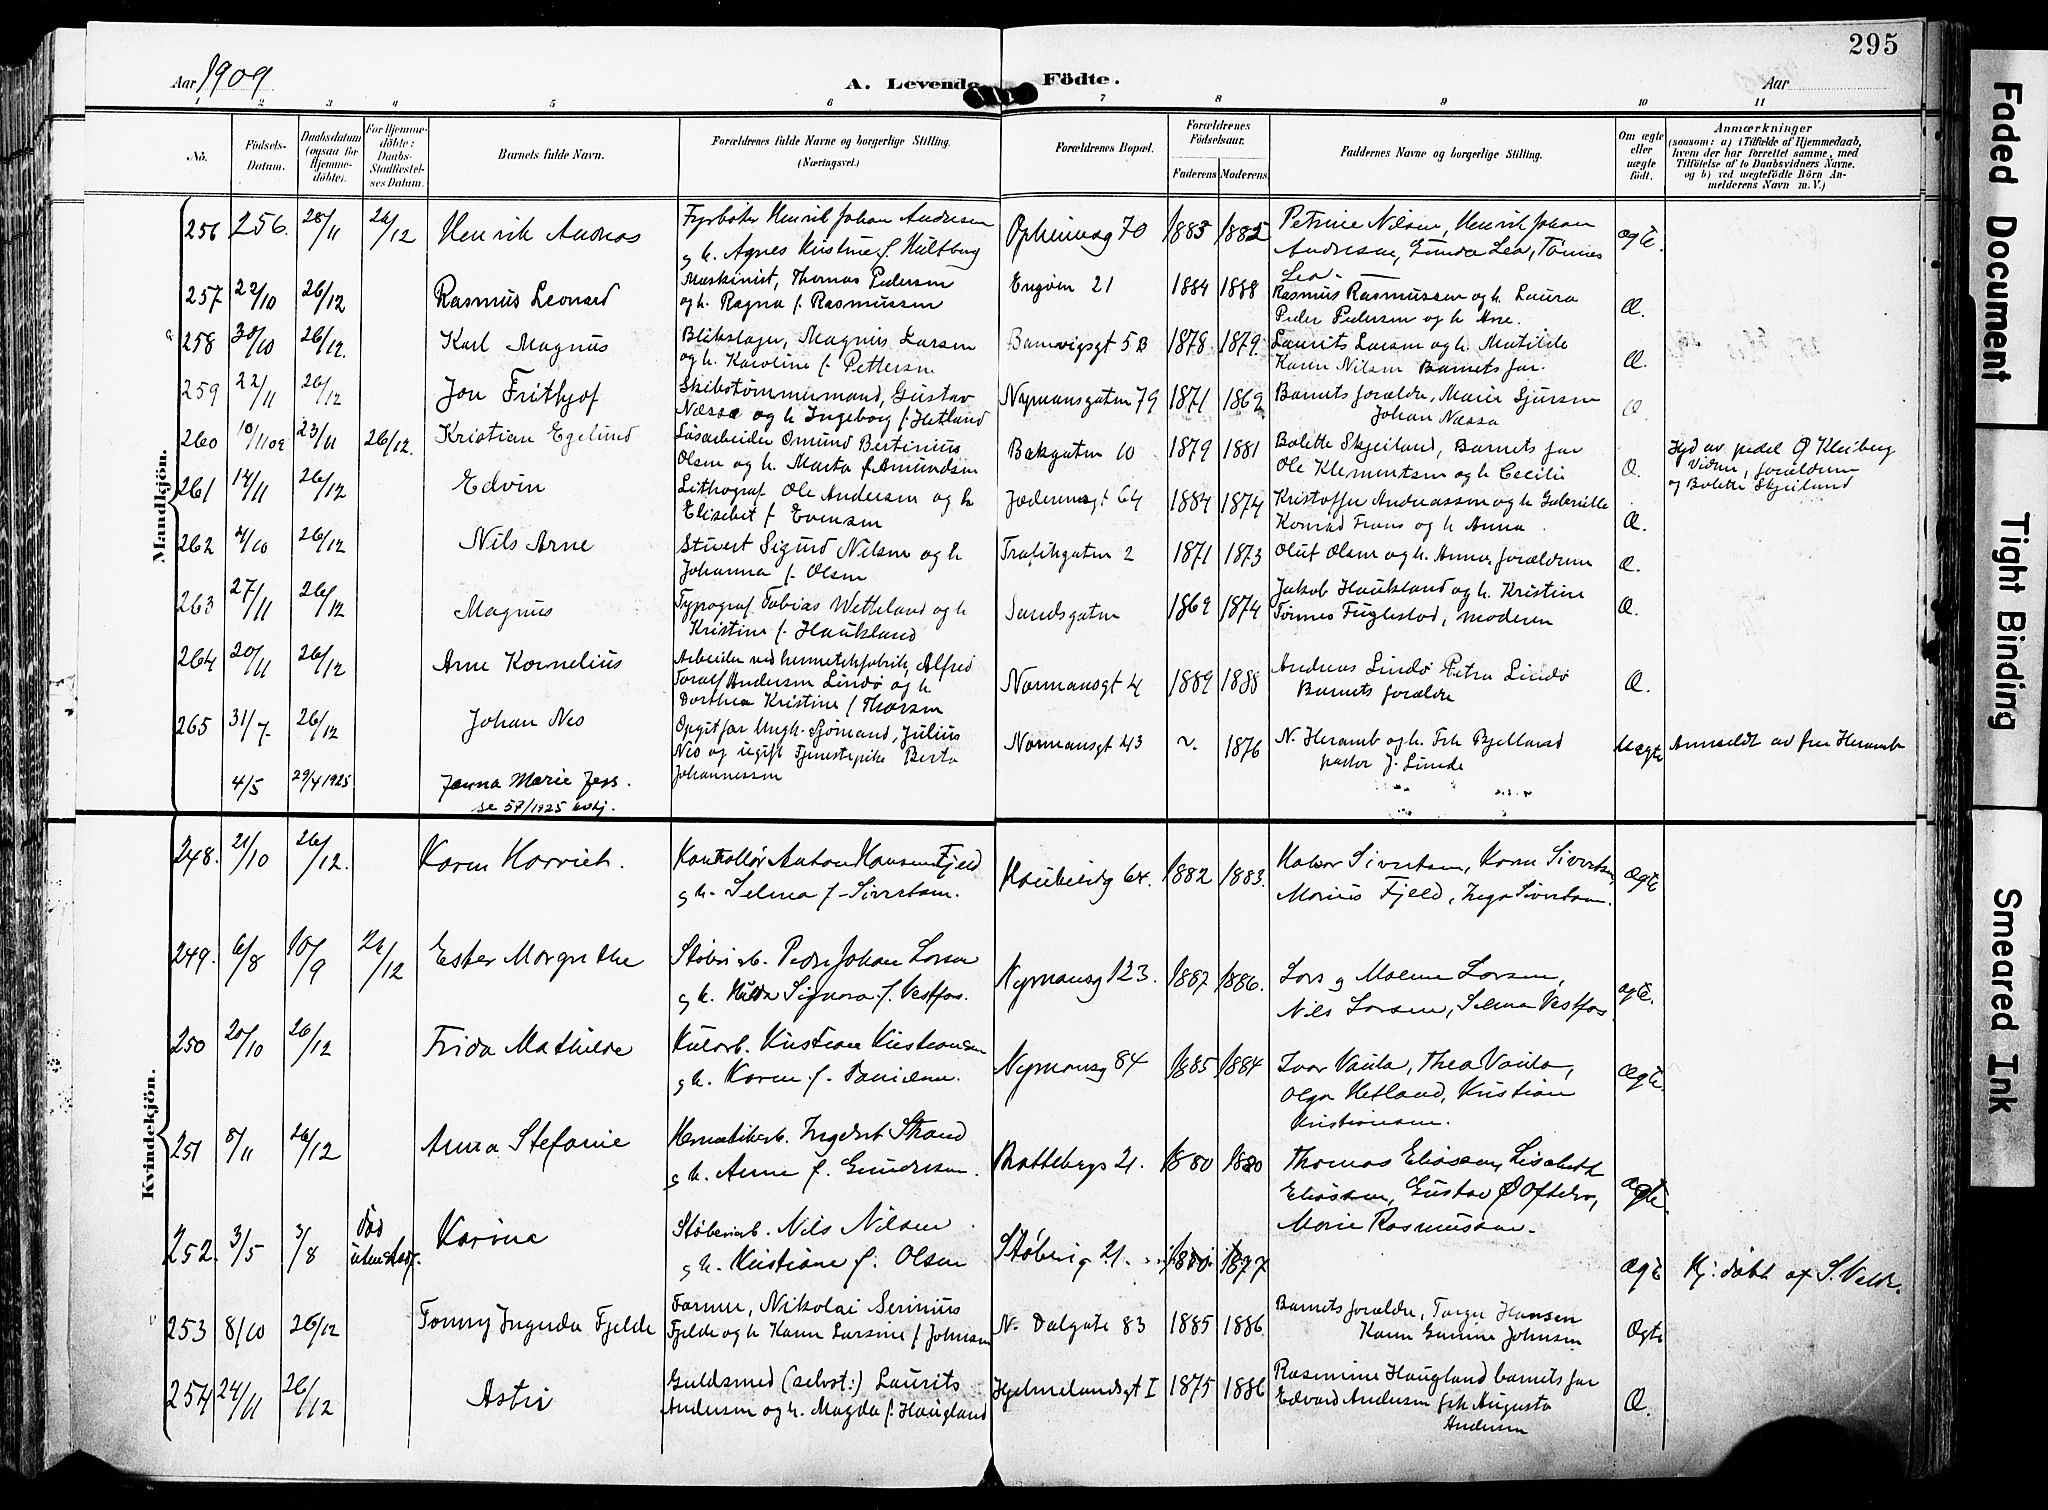 295
Aar 1909
A. Levende Födte.
Aar
1 2 3 4 5 6 7 8 9 10 11
No.
Födsels-Datum.
Daabsdatum (ogsaa for Hjemme-döbte).
For Hjemme-döbte: Daabs-Stadfæstel-ses Datum.
Barnets fulde Navn.
Forældrenes fulde Navne og borgerlige Stilling. (Næringsvei.)
Forældrenes Bopæl.
Forældrenes Födselsaar.
Faderens Moderens
Faddernes Navne og borgerlige Stilling.
Om ægte eller uægte födt.
Anmærkninger
(saasom: a) i Tilfælde af Hjemmedaab, hvem der har forrettet samme, med Tilföielse af to Daabsvidners Navne, og b) ved uægtefödte Börn An-melderens Navn m. V.)
Mandkjön.
256 256. 28/11 26/12 Henrik Andreas
Fyrbøter Henrik Johan Andresen
g h. Agnes Kristine f. Hultberg
Opheimsg 70 1883 1882
Petrine Nilsen, Henrik Johan
Andresen, Gunda Lea, Tønnes
Lea
ægte.
257 22/10 26/12 Rasmus Leonard
Maskinist, Thomas Pedersen
og h. Ragna f. Rasmussen
Engvein 21 1884 1888
Rasmus Rasmussen og h. Laura
Peder Pedersen og h Ane.
Æ.
258 30/10 26/12. Karl Magnus
Blikslager, Magnus Larsen
og h. Karoline f. Pettersen
5B 1878 1879.
Laurits Larsen og h. Matilde
Karen Nilsen Barnets far.
Æ.
259 22/11 26/12 Jon Frithjof
Skibstømmermand, Gustav
Næssa og h Ingeborg f. Hetland
Nymansgaten 79 1871 1869
Barnets forældre, Marie Sjursen
Johan Næssa
Æ
260 10/11 09 23/11 26/12. Kristian Egelund
Løsarbeider Omund Bertinius
Olsen og h. Marta f. Amundsen
Bakgaten 10 1879 1881
Bolette Skjeiland, Barnets far
Ole Klementsen og h Cecilie
Æ.
Hjd av pedel O Kleiberg
Vidner, forældrene
og Bolette Skjeiland
261 14/11 26/12 Edvin
Lithograf Ole Andersen og h
Elisebet f. Evensen
Jæderensgt 64 1884 1874
Kristoffer Andreassen og h Gabrielle
Konrad Frans og h Anna.
Æ.
262 4/10 26/12 Nils Arne
Stuert Sigurd Nilsen og h
Johanna f. Olsen
2 1871 1873
Oluf Olsen og h. Anna, forældrene
Æ.
263 27/11 26/12 Magnus
Typograf. Tobias Wetteland og h
Kristine f. Haukland
Sandsgaten 1869 1874
Jakob Haukland og h. Kristine
Tønnes Fuglestad, moderen
Æ.
264 20/11 26/12 Arne Kornelius
Arbeider ved hermetikfabrik, Alfred
Toralf Andersen Lindø og h
Dorthea Kristine f Thorsen
Normansgt 4 1889 1888
Andreas Lindø Petra Lindø
Barnets forældre
Æ.
265 31/7 26/12 Johan Nes
Opgit far Ungk. Sjømand, Julius
Nes og ugift Tjenestepike Berta
Johannessen
Normansgt 43 ~. 1876
N. Heramb og h. Frk Bjelland
pastor J. Lunde
Uægte
Anmeldt av frue Heramb
4/5 29/4 1925 Janna Marie
se 57/1925
Kvindekjön.
248. 21/10 26/12. Karen Harriet.
Kontrollør Anton Hansen Fjeld
g h. Selma f. Sivertsen.
64. 1882 1883.
Halvor Sivertsen, Karen Sivertsen,
Marius Fjeld, Inga Sivertsen.
ægte
249. 6/8 10/9 26/12 Ester Margrethe
Støberiarb. Peder Johan Larsen
g h. Hilda Signora f. Vestfos.
Nymansg 123. 1887 1886.
Lars g Malene Larsen,
Nils Larsen, Selma Vestfos
ægte.
250 20/10 26/12 Frida Mathilde
Kularb. Kristian Kristiansen
g h. Karen f. Danielsen.
Nymansg 84 1885 1884
Ivar Vaula, Thea Vaula,
Olga Hetland, Kristian
Kristiansen.
ægte.
251 8/11 26/12 Anna Stefanie
Hermetikarb. Ingebret Strand
g h. Anne f. Gundersen.
Brattebergs 21. 1880 1880
Thomas Eliassen, Lisabeth
Eliassen, Gustav Oftedal,
Marie Rasmussen.
ægte.
252. 3/5 3/8 død Karina
Støberiarb. Nils Nilsen
g h. Kristiane f. Olsen
Støberig 21. 1880 1877
ægte
Hj. døbt af S. Veldr.
253 8/10 26/12 Tonny Ingerda Fjelde
Former, Nikolai Serinius
Fjelde og h Karen Larsine f Johnsen
N. Dalgate 83 1885 1886
Barnets forældre, Torger Hansen
Karen Gurine Johnsen
Ægte
254 24/11 26/12 Astri
Guldsmed (selvst:) Laurits
Andersen og h. Magda f. Haugland
Hjelmelandsgt I 1875 1886
Rasmine Haugland barnets far
Edvard Andersen frk Augusta
Andersen
Æ.
Faded Document
Tight Binding
Smeared Ink